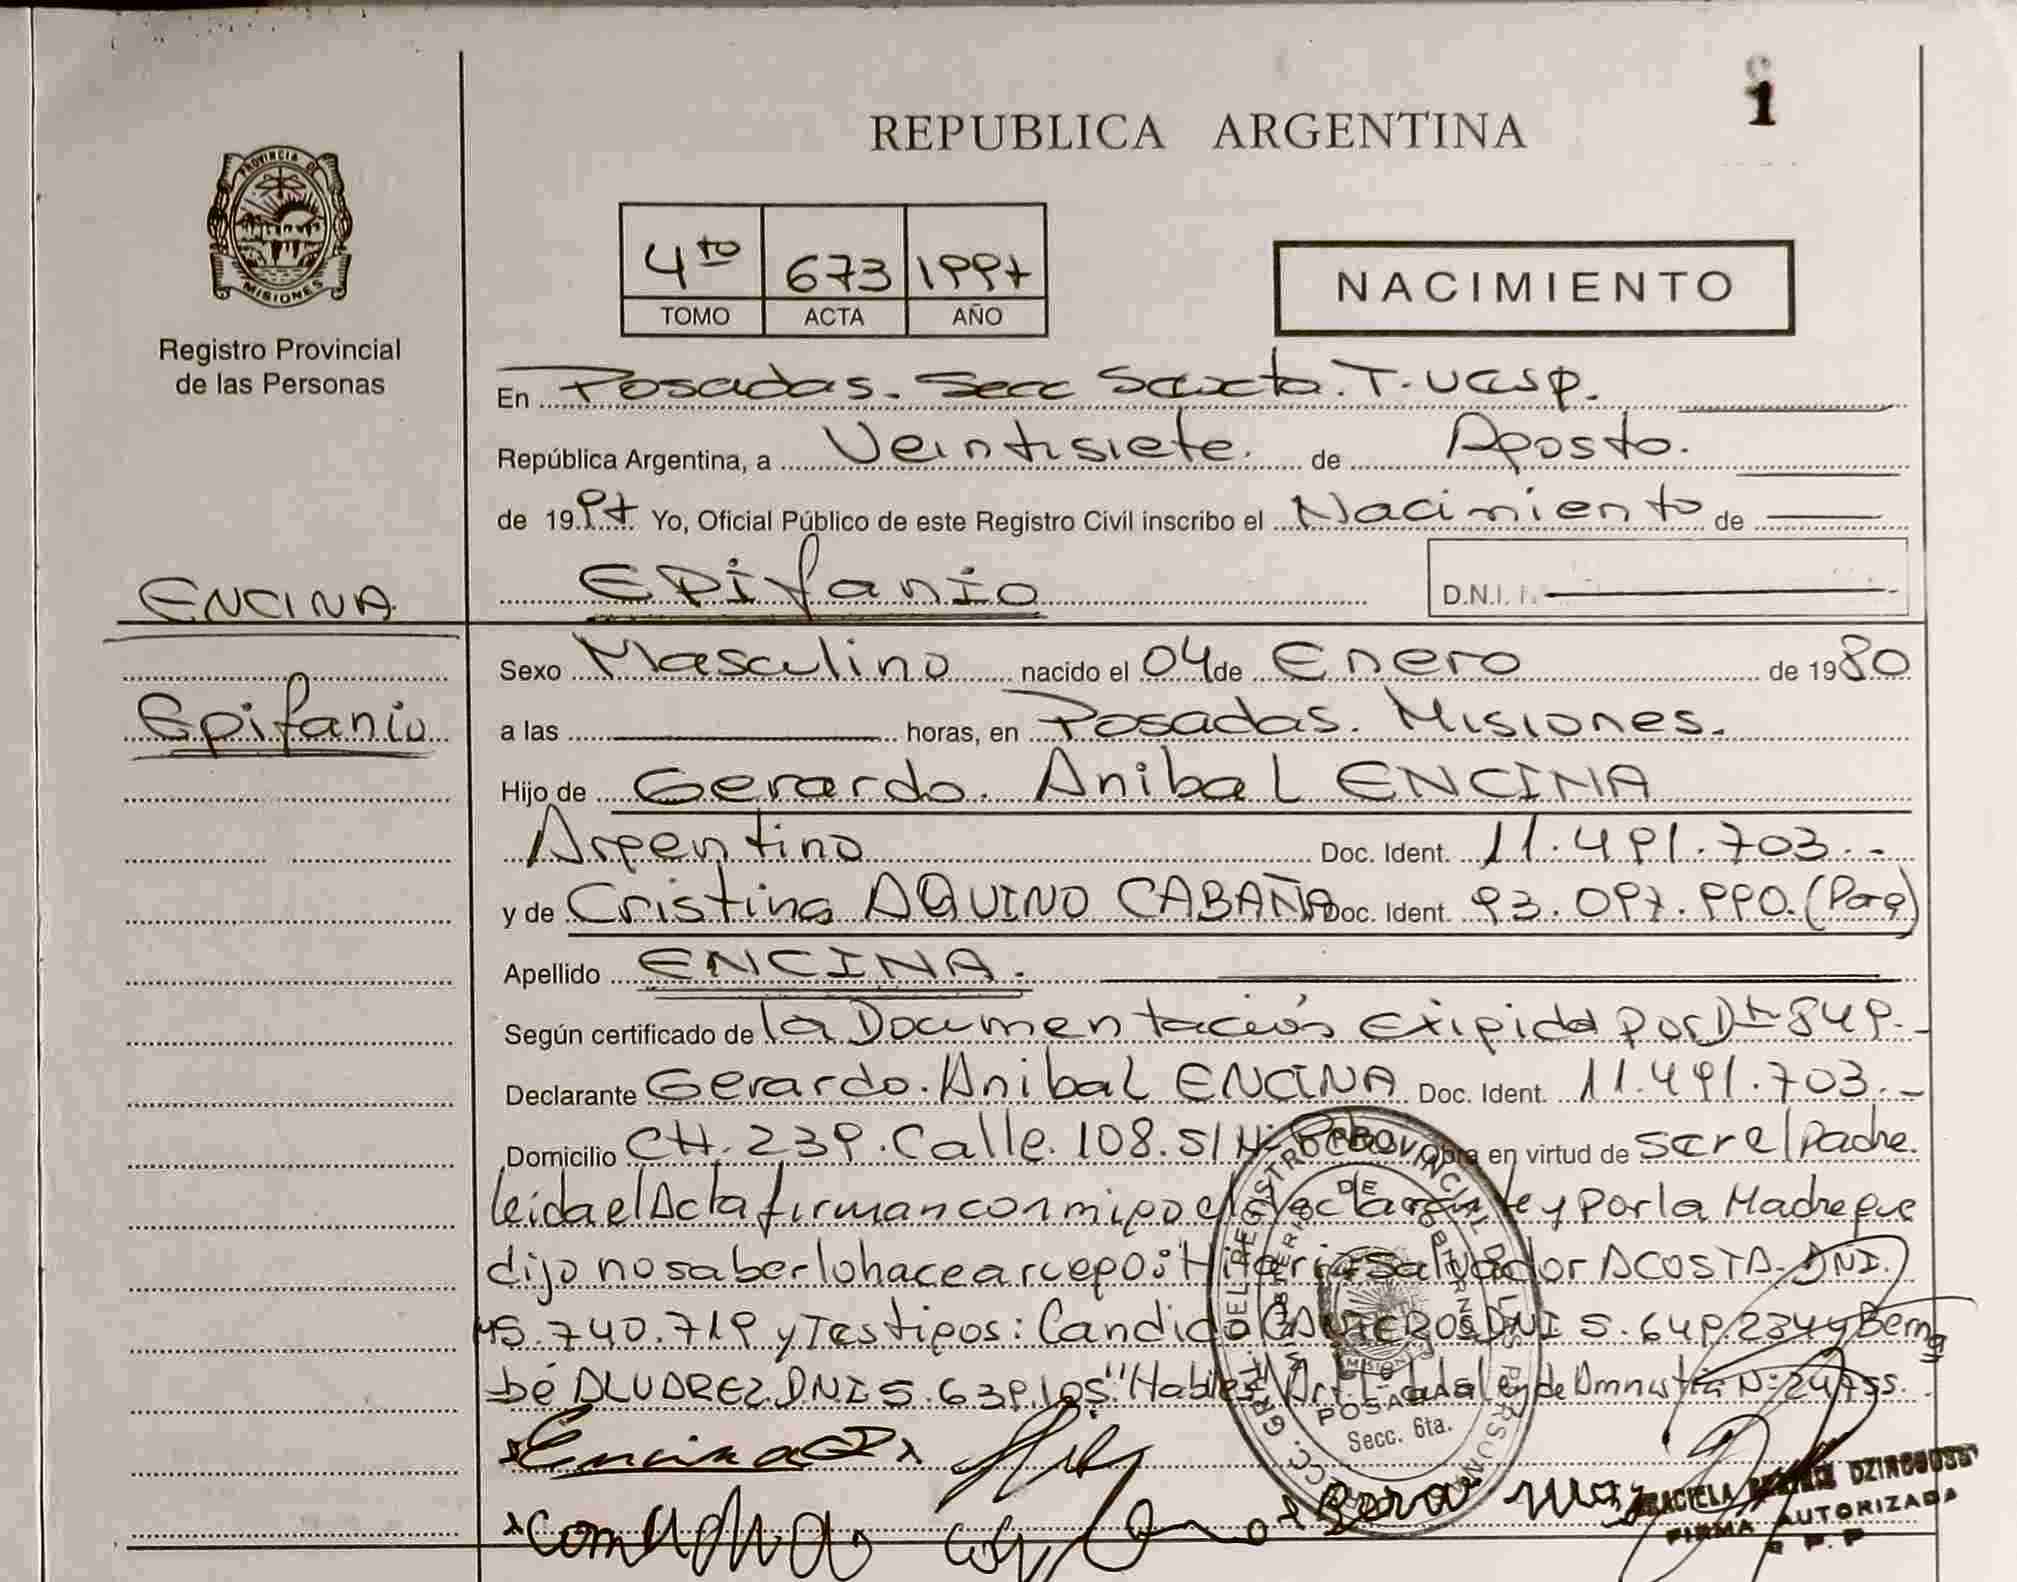 1
REPUBLICA ARGENTINA
PROVINCIA DE
MISIONES
Registro Provincial
de las Personas
4to 673 1997
TOMO ACTA AÑO
NACIMIENTO
En Posadas. Secc Sexta. T.
República Argentina, a Veintisiete. de Agosto.
de 1997 Yo, Oficial Público de este Registro Civil inscribo el Nacimiento de
Epifanio D.N.I.
ENCINA
Epifanio
Sexo Masculino nacido el 04 de Enero de 1980
a las horas, en Posadas. Misiones.
Hijo de Gerardo. Anibal ENCINA
Argentino Doc. Ident. 11.491.703.-
y de Cristina AQUINO CABAÑA Doc. Ident. 93.097.990. (Parg)
Apellido ENCINA.
Según certificado de la Documentación Exigida por 849.-
Declarante Gerardo. Anibal ENCINA Doc. Ident. 11.491.703.-
Domicilio CH. 239. Calle. 108. S/N: Obra en virtud de ser el Padre.
leida el Acta firman conmigo el declarante y por la Madre que
dijo no saber lo hace a ruego: Hilario Salvador ACOSTA. DNI.
.740.719 y Testigos: Candido DNI 5.649.234 y Berna
bé ALVAREZ. DNI 5.639.105. de Amnistia N:
Encina
POSADAS
Secc. 6ta.
GRACIELA
FIRMA AUTORIZADA